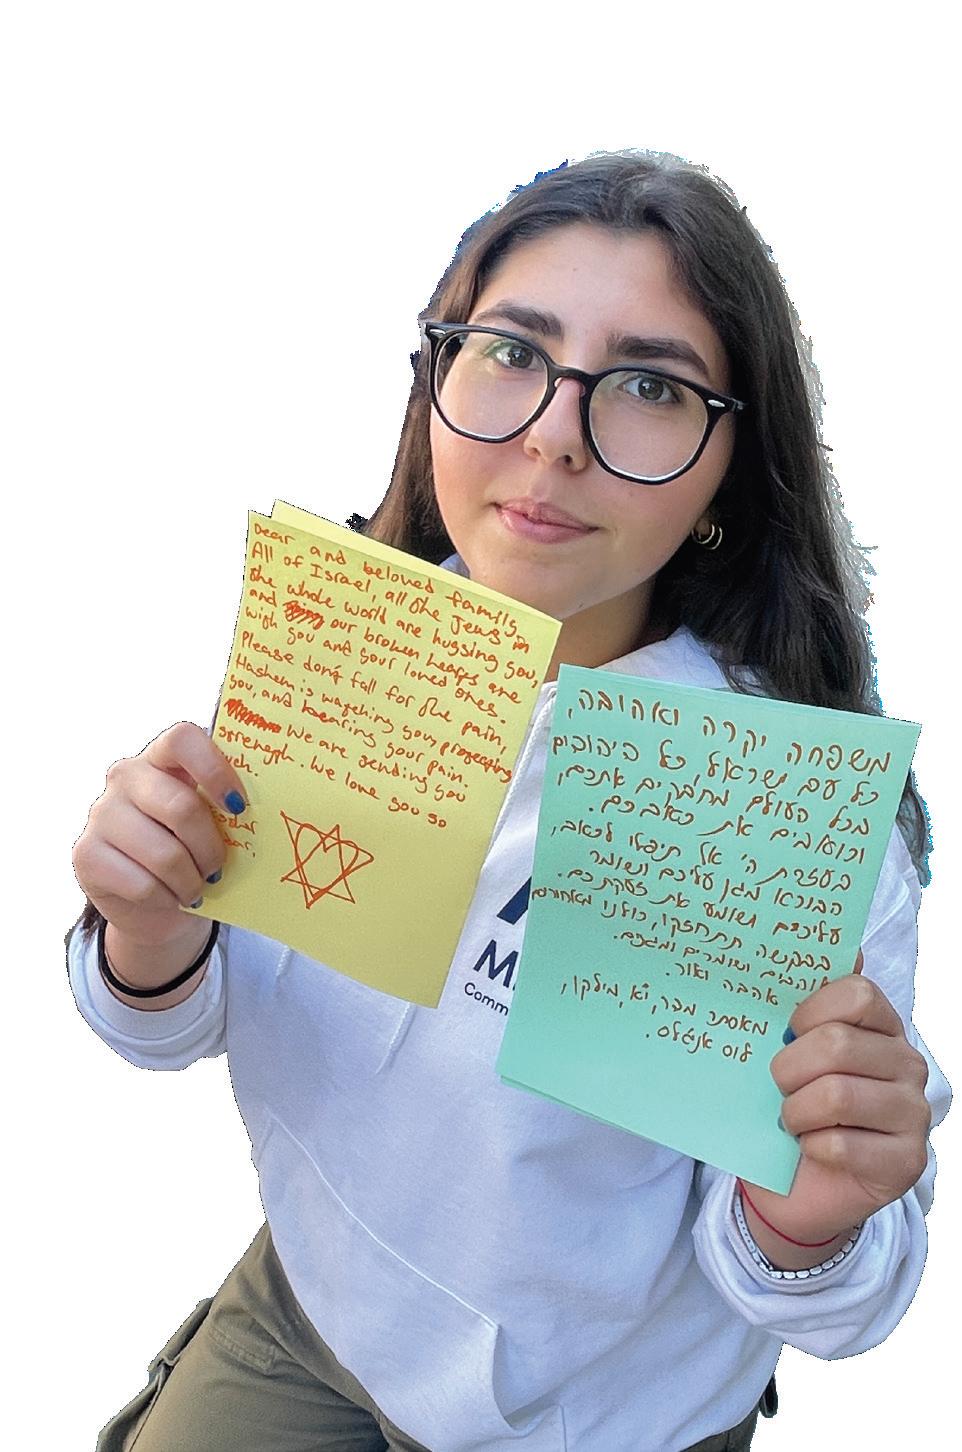 Dear and beloved family,
All of Israel, all the Jews in
the whole world are hugging you,
and our broken hearts are
with you and your loved ones.
Please don't fall for the pain,
Hashem is watching you, protecting
you, and hearing your pain.
We are sending you
strength. We love you so
משפחה יקרה ואהובה,
כל עם ישראל, כל היהודים
מכל העולם מחבקים אתכם,
וכואבים את כאבכם.
בעזרת ה' אל תיפלו לכאב,
הבורא מגן עליכם ושומר
עליכם ושומע את זעקתכם.
בבקשה תתחזקו, כולנו מאחוריכם
אוהבים ושומרים ומגנים.
אהבה ואור.
מאסתר מבר, יא, מילקן,
לוס אנג'לס.
M
Comm